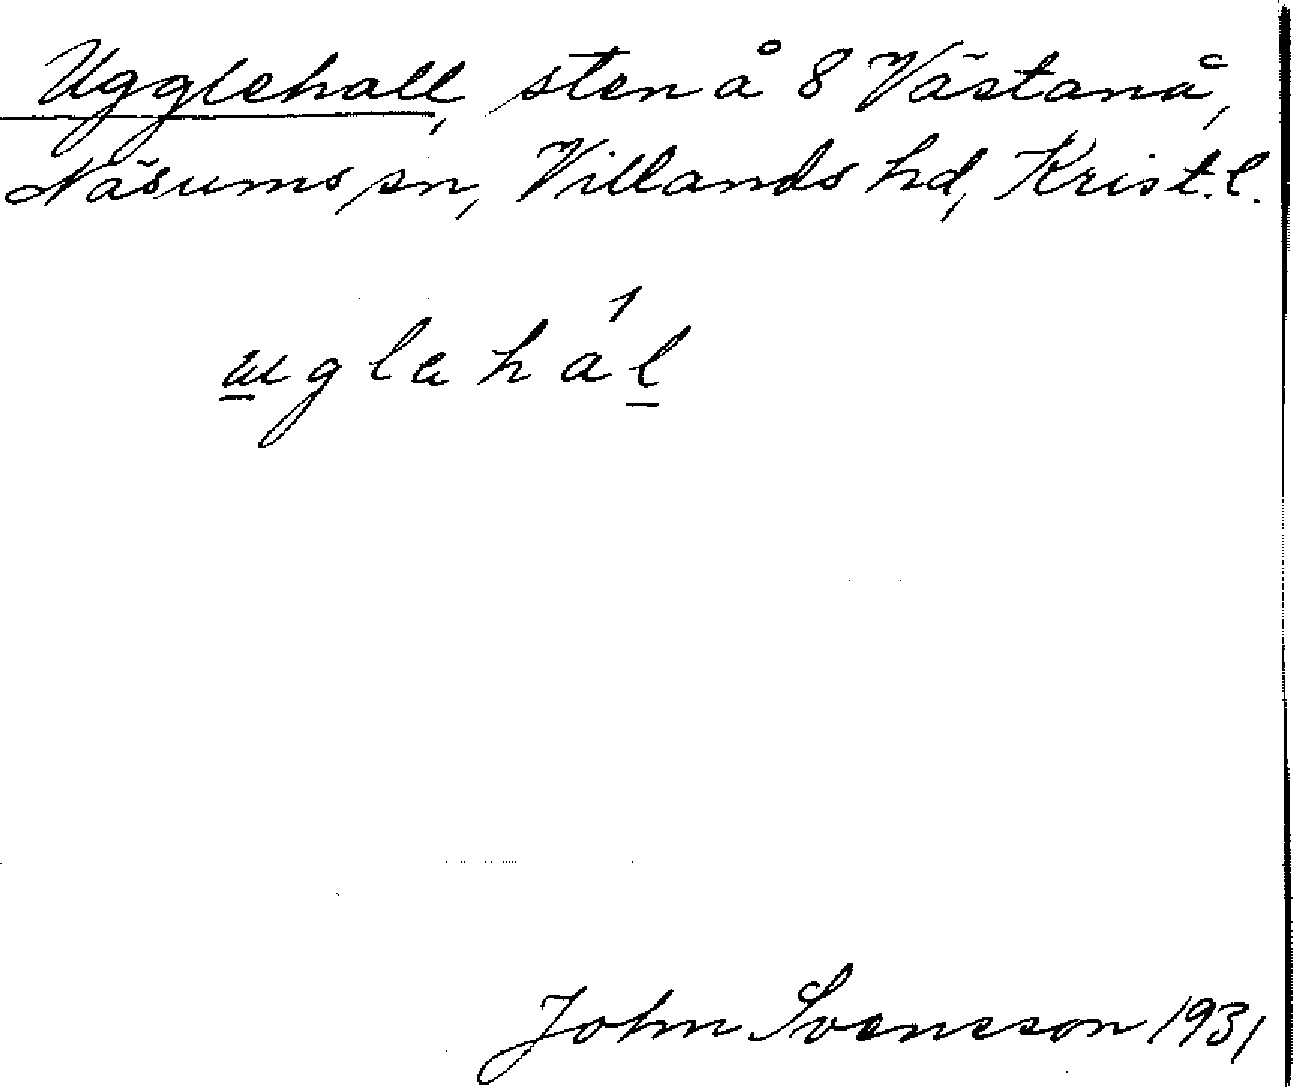 Ugglehall, sten å 8 Västanå,
Näsums sn, Villands hd, Krist.l.
uglahál
John Svensson 1931